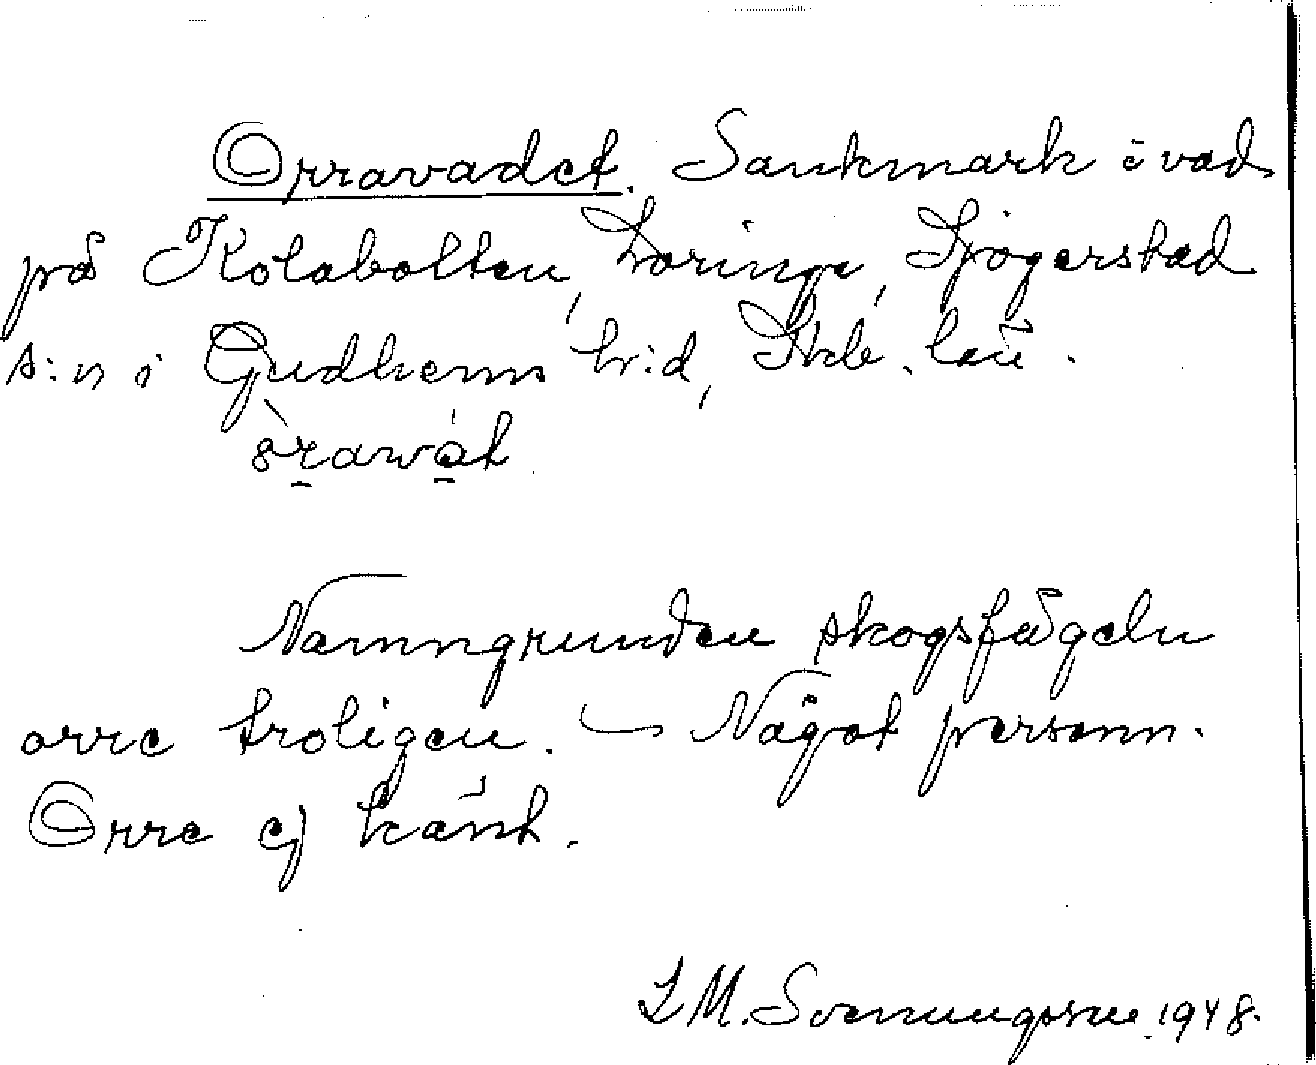 Orravadet. Sankmark i vad
på Kolabolten, Loringa, Sjögerstad
s:n i Gudhems h:d, Skb. län.
òrawàt
Namngrunden skogsfågeln
orre troligen. – Något personn.
Orre ej känt.
L M. Svenungsson 1948.